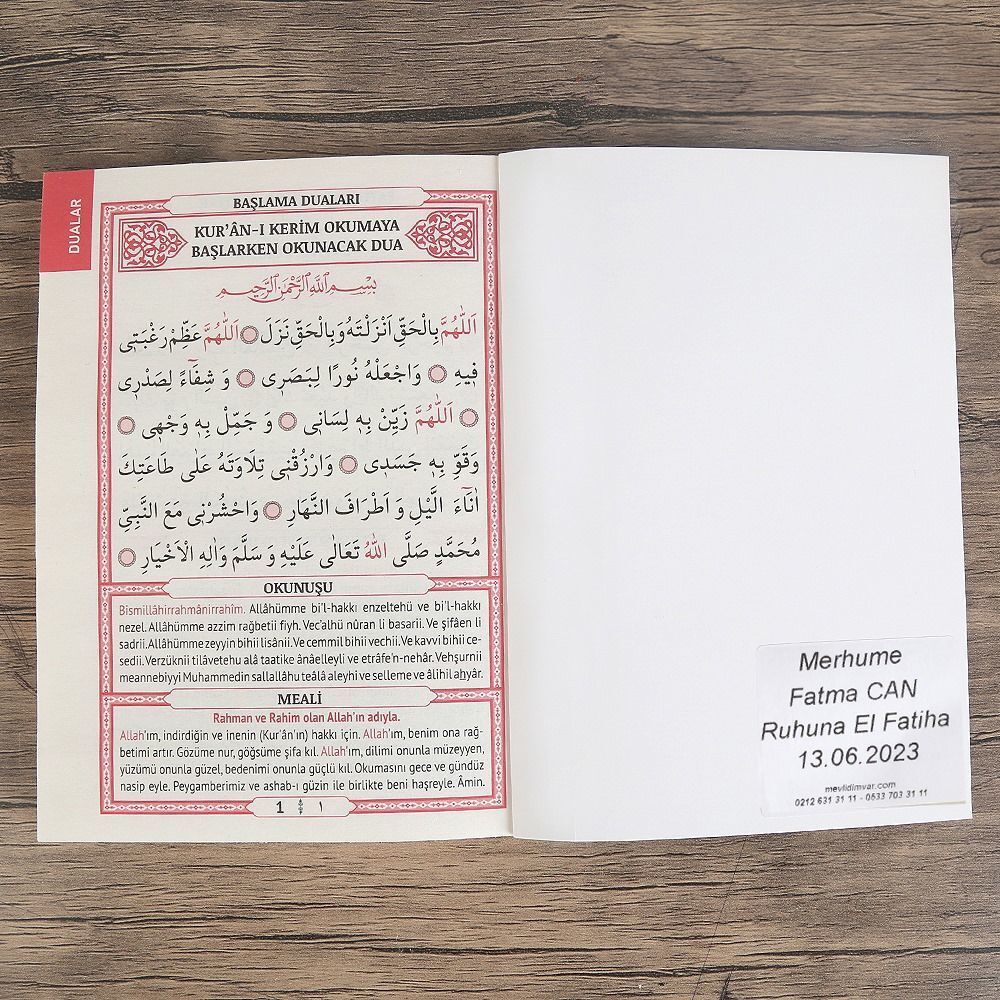 DUALAR
BAŞLAMA DUALARI
KUR'ÂN-I KERİM OKUMAYA
BAŞLARKEN OKUNACAK DUA
بِسْمِ اللهِ الرَّحْمٰنِ الرَّحِيمِ
اَللّٰهُمَّ بِالْحَقِّ اَنْزَلْتَهُ وَبِالْحَقِّ نَزَلَ اَللّٰهُمَّ عَظِّمْ رَغْبَتٖى
فٖيهِ وَاجْعَلْهُ نُورًا لِبَصَرٖى وَ شِفَٓاءً لِصَدْرٖى
اَللّٰهُمَّ زَيِّنْ بِهٖ لِسَانٖى وَ جَمِّلْ بِهٖ وَجْهٖى
وَقَوِّ بِهٖ جَسَدٖى وَارْزُقْنٖى تِلَاوَتَهُ عَلٰى طَاعَتِكَ
اٰنَٓاءَ الَّيْلِ وَ اَطْرَافَ النَّهَارِ وَاحْشُرْنٖى مَعَ النَّبِيِّ
مُحَمَّدٍ صَلَّى اللهُ تَعَالٰى عَلَيْهِ وَ سَلَّمَ وَاٰلِهِ الْاَخْيَارِ
OKUNUŞU
Bismillâhirrahmânirrahîm. Allâhümme bi'l-hakkı enzeltehü ve bi'l-hakkı
nezel. Allâhümme azzim rağbetii fiyh. Vec'alhü nûran li basarii. Ve şifâen li
sadrii. Allâhümme zeyyin bihii lisânii. Ve cemmil bihii vechii. Ve kavvi bihii ce-
sedii. Verzüknii tilâvetehu alâ taatike ânâelleyli ve etrâfe'n-nehâr. Vehşurnii
meannebiyyi Muhammedin sallallâhu teâlâ aleyhi ve selleme ve âlihil aḥyâr.
MEALİ
Rahman ve Rahim olan Allah'ın adıyla.
Allah'ım, indirdiğin ve inenin (Kur'ân'ın) hakkı için. Allah'ım, benim ona rağ-
betimi artır. Gözüme nur, göğsüme şifa kıl. Allah'ım, dilimi onunla müzeyyen,
yüzümü onunla güzel, bedenimi onunla güçlü kıl. Okumasını gece ve gündüz
nasip eyle. Peygamberimiz ve ashab-ı güzin ile birlikte beni haşreyle. Âmin.
1 ١
Merhume
Fatma CAN
Ruhuna El Fatiha
13.06.2023
mevlidimvar.com
0212 631 31 11 - 0533 703 31 11